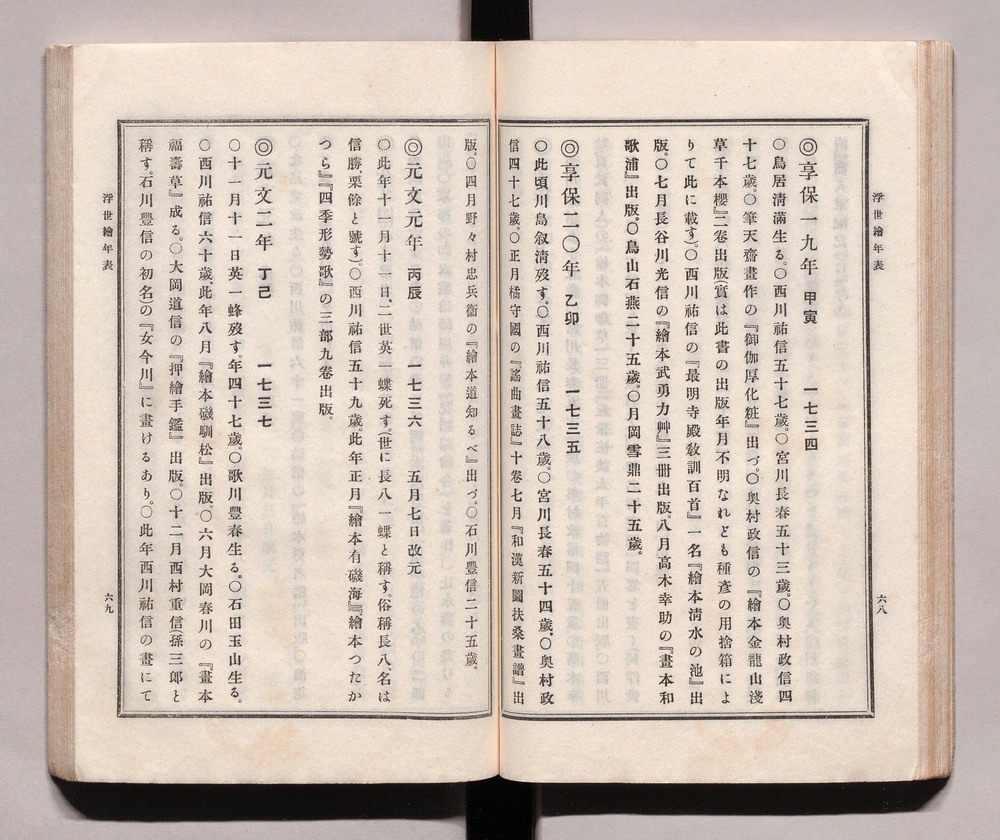 浮世繪年表
六八
◎享保一九年 甲寅 一七三四
○鳥居淸滿生る。○西川祐信五十七歲。○宮川長春五十三歲。○奧村政信四
十七歲。○筆天齋畫作の『御伽厚化粧』出づ。○奧村政信の『繪本金龍山淺
草千本櫻』二卷出版(實は此書の出版年月不明なれども種彥の用捨箱によ
りて此に載す)。○西川祐信の『最明寺殿敎訓百首』一名『繪本淸水の池』出
版。○七月長谷川光信の『繪本武勇力艸』三冊出版。八月高木幸助の『畫本和
歌浦』出版。○鳥山石燕二十五歲。○月岡雪鼎二十五歲。
◎享保二〇年 乙卯 一七三五
○此頃川島叙淸歿す。○西川祐信五十八歲。○宮川長春五十四歲。○奧村政
信四十七歲。○正月橘守國の『謠曲畫誌』十卷七月『和漢新圖扶桑畫譜』出
版。○四月野々村忠兵衞の『繪本道知るべ』出づ。○石川豐信二十五歲。
◎元文元年 丙辰 一七三六 五月七日改元
○此年十一月十一日、二世英一蝶死す。(世に長八一蝶と稱す。俗稱長八、名は
信勝、栗餘と號す)。○西川祐信五十九歲。此年正月『繪本有磯海』『繪本つたか
つら』『四季形勢歌』の三部九卷出版。
◎元文二年 丁己 一七三七
○十一月十一日英一蜂歿す。年四十七歲。○歌川豐春生る。○石田玉山生る。
○西川祐信六十歲、此年八月『繪本磯馴松』出版。○六月大岡春川の『畫本
福壽草』成る。○大岡道信の『押繪手鑑』出版。○十二月西村重信(孫三郞と
稱す。石川豐信の初名)の『女今川』に畫けるあり。○此年西川祐信の畫にて
浮世繪年表
六九